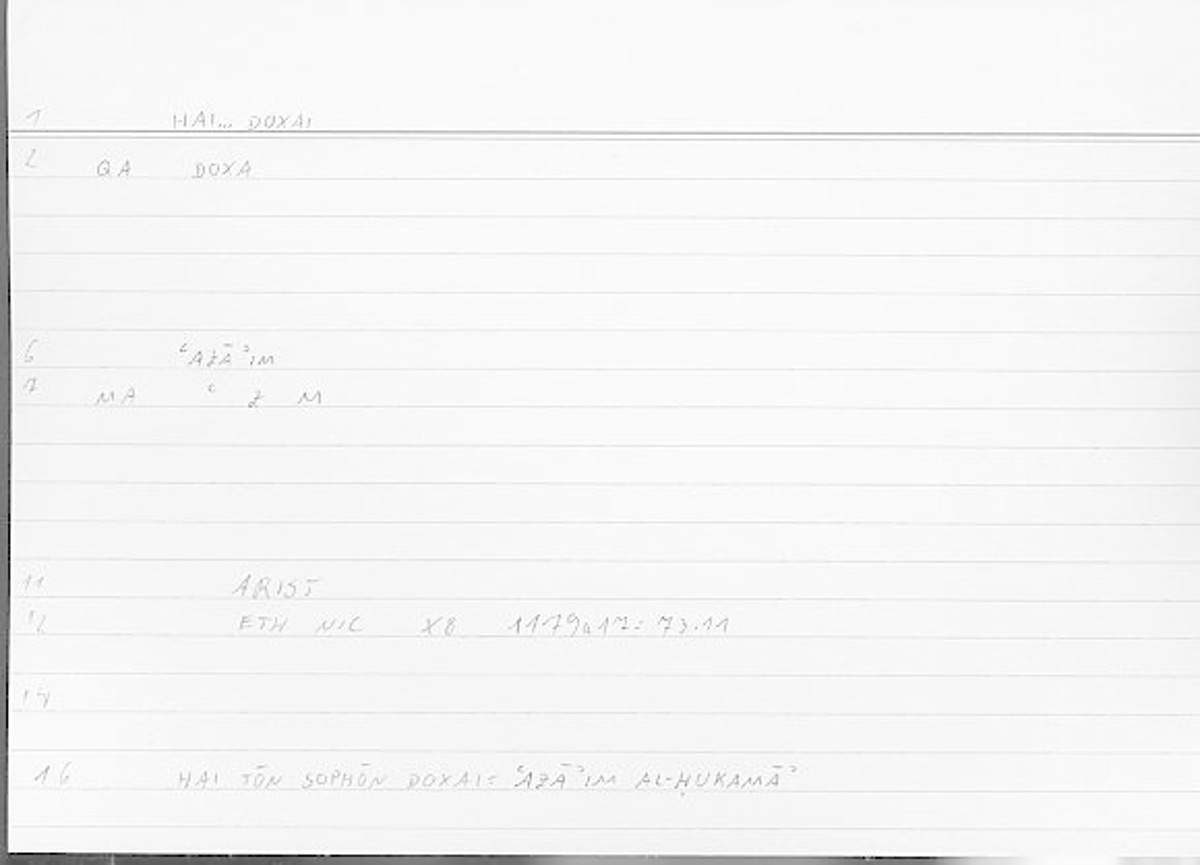 1 HAI... DOXAI
2 QA DOXA
6 ʿAZĀʾIM
7 MA ʿ Z M
11 ARIST
12 ETH NIC X8 1179a17: 73.11
14
16 HAI TŌN SOPHŌN DOXAI= ʿAZĀʾIM AL-ḤUKAMĀʾ